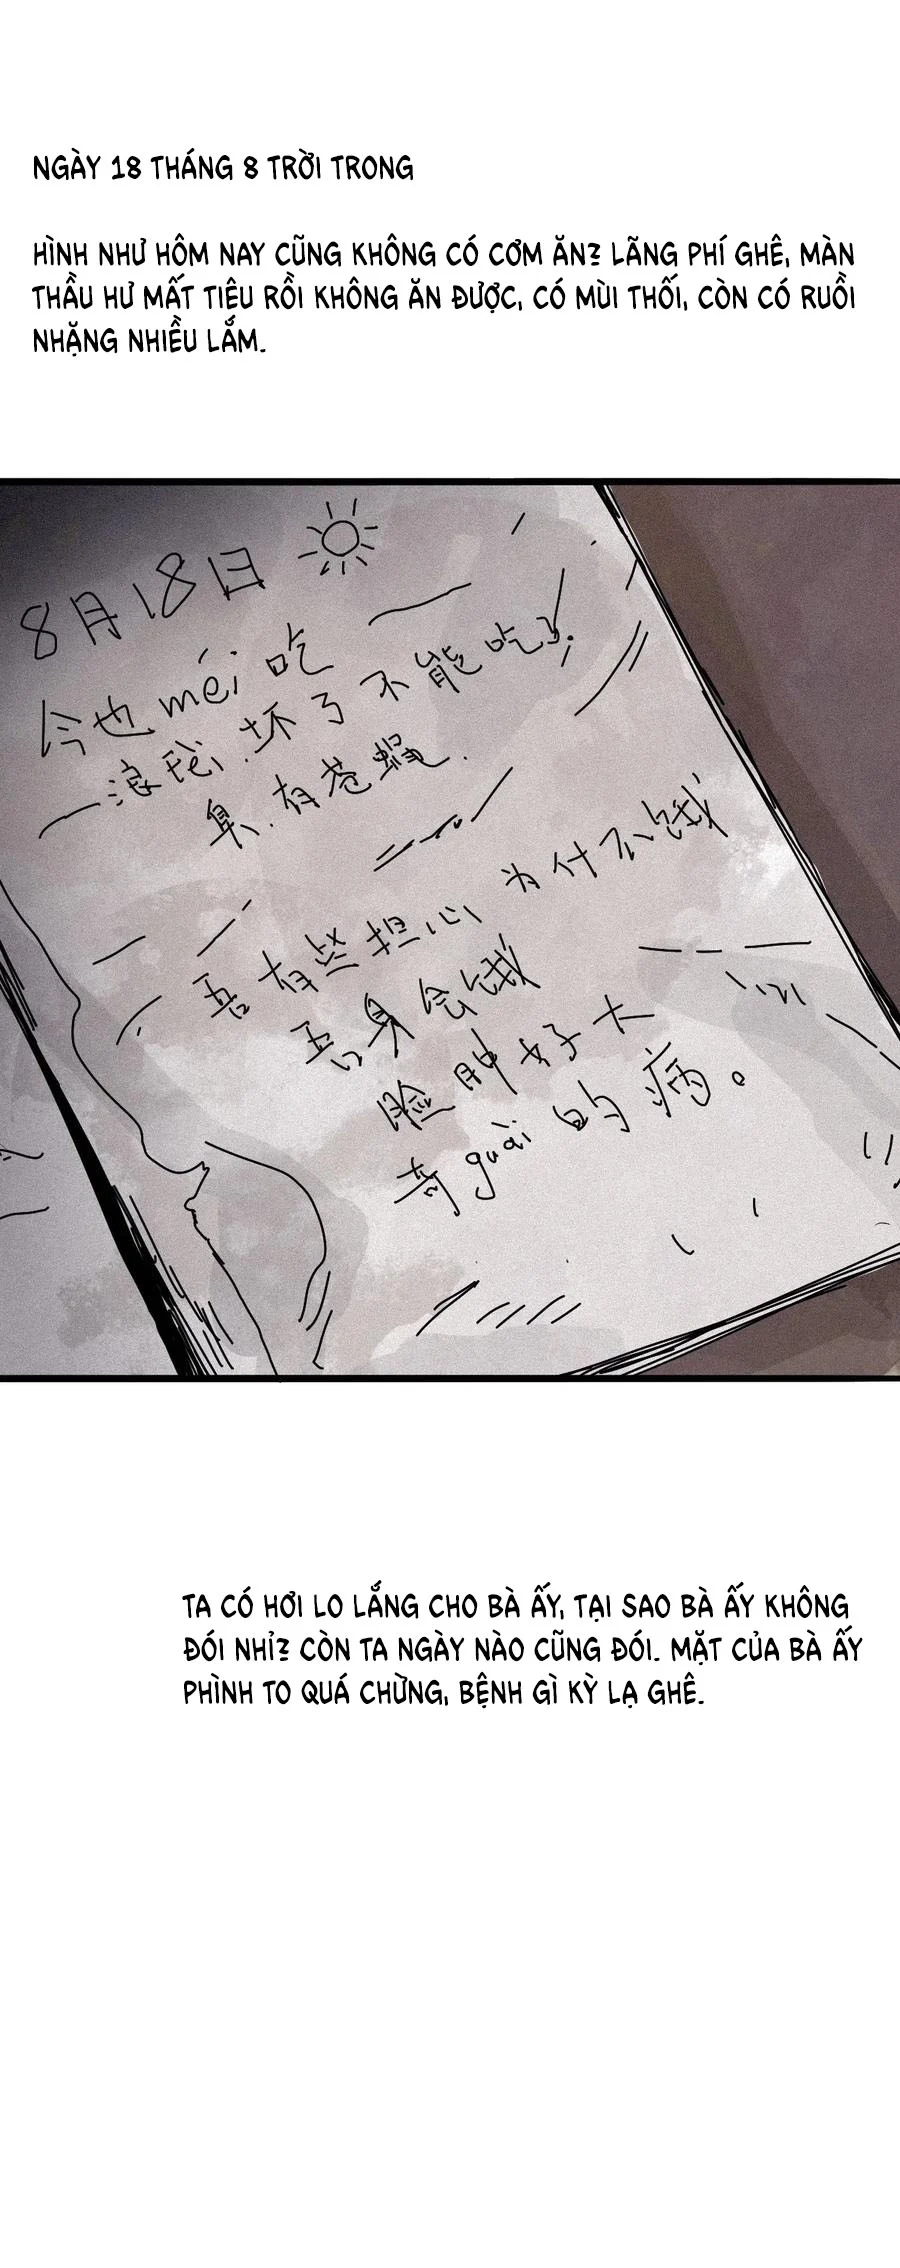 NGÀY 18 THÁNG 8 TRỜI TRONG
HÌNH NHƯ HÔM NAY CŨNG KHÔNG CÓ CƠM ĂN? LÃNG PHÍ GHÊ, MÀN
THẦU HƯ MẤT TIÊU RỒI KHÔNG ĂN ĐƯỢC, CÓ MÙI THỐI, CÒN CÓ RUỒI
NHẶNG NHIỀU LẮM.
8月18日
今也méi吃
一滚 坏了不能吃了.
臭.有苍蝇.
吾有些担心为什不饿
吾身会饿
脸肿好大
奇guài的病。
TA CÓ HƠI LO LẮNG CHO BÀ ẤY, TẠI SAO BÀ ẤY KHÔNG
ĐÓI NHỈ? CÒN TA NGÀY NÀO CŨNG ĐÓI. MẶT CỦA BÀ ẤY
PHÌNH TO QUÁ CHỪNG, BỆNH GÌ KỲ LẠ GHÊ.